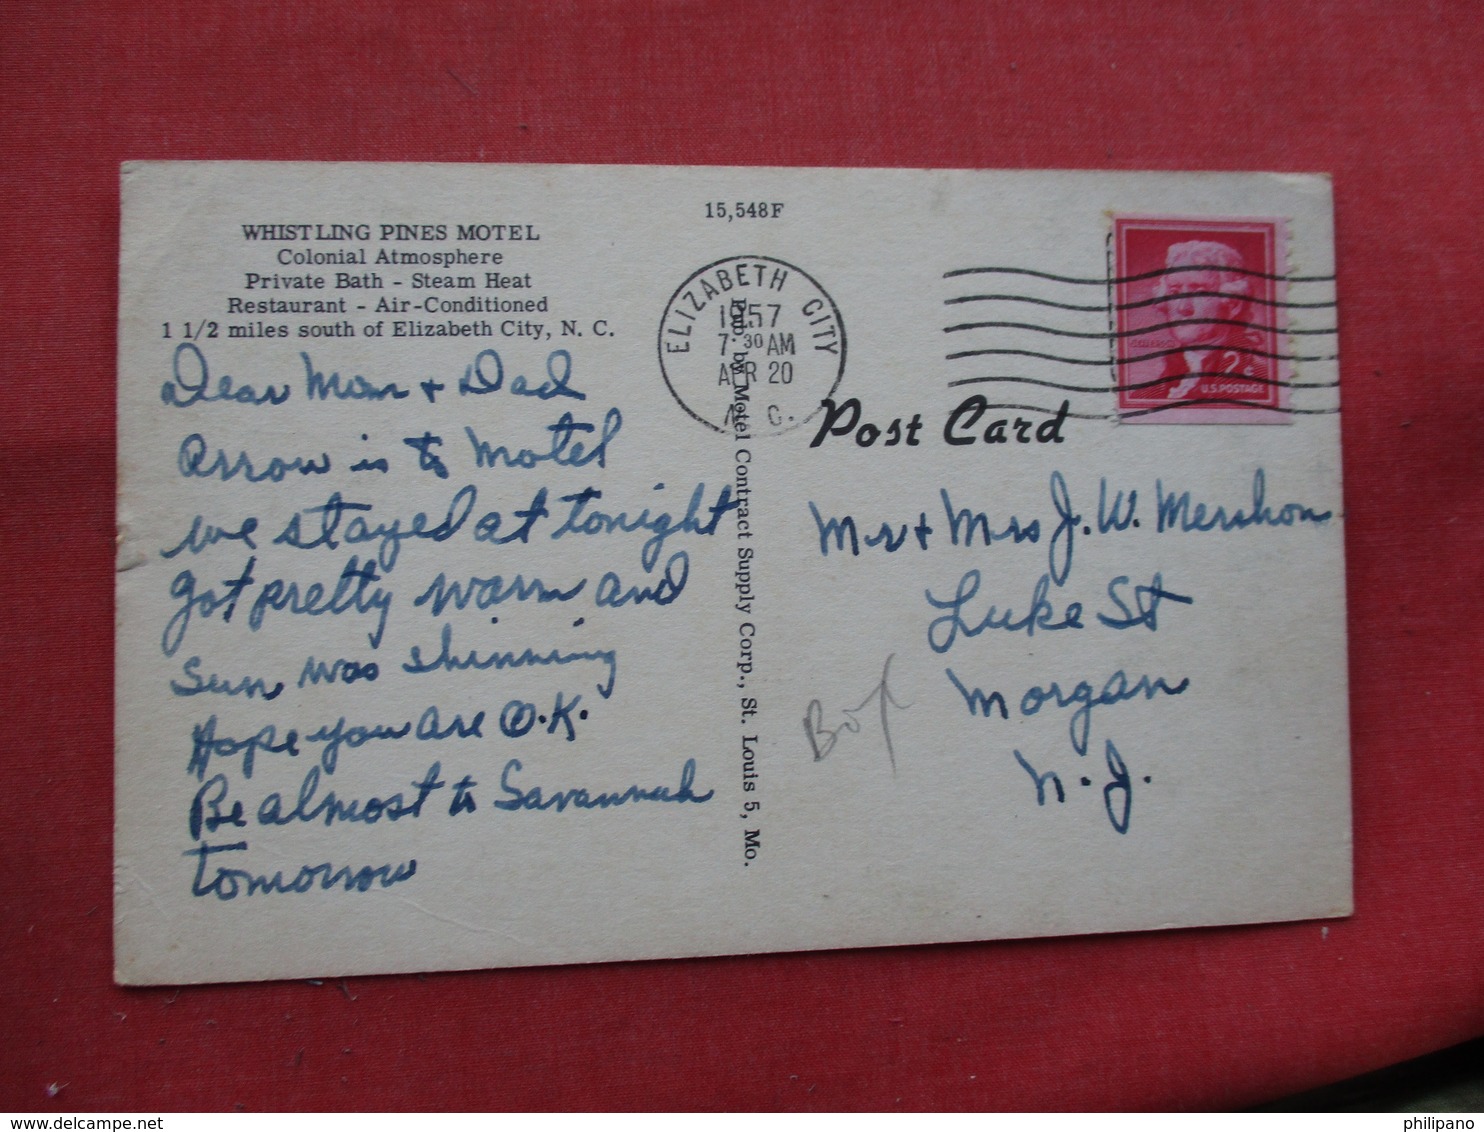 15,548F
WHISTLING PINES MOTEL
Colonial Atmosphere
Private Bath - Steam Heat
Restaurant - Air-Conditioned
1 1/2 miles south of Elizabeth City, N. C.
Dear Mom + Dad
Arrow is to Motel
we stayed at tonight
Got pretty warm and
Sun was shinning
Hope you are O.K.
Be almost to Savannah
tomorrow
Pub. by Motel Contract Supply Corp., St. Louis 5, Mo.
ELIZABETH CITY
1957
7 30 AM
APR 20
N. C.
JEFFERSON
2¢
U.S. POSTAGE
Post Card
Mr + Mrs J. W. Mershon
Luke St
Morgan
N. J.
Box
philipano